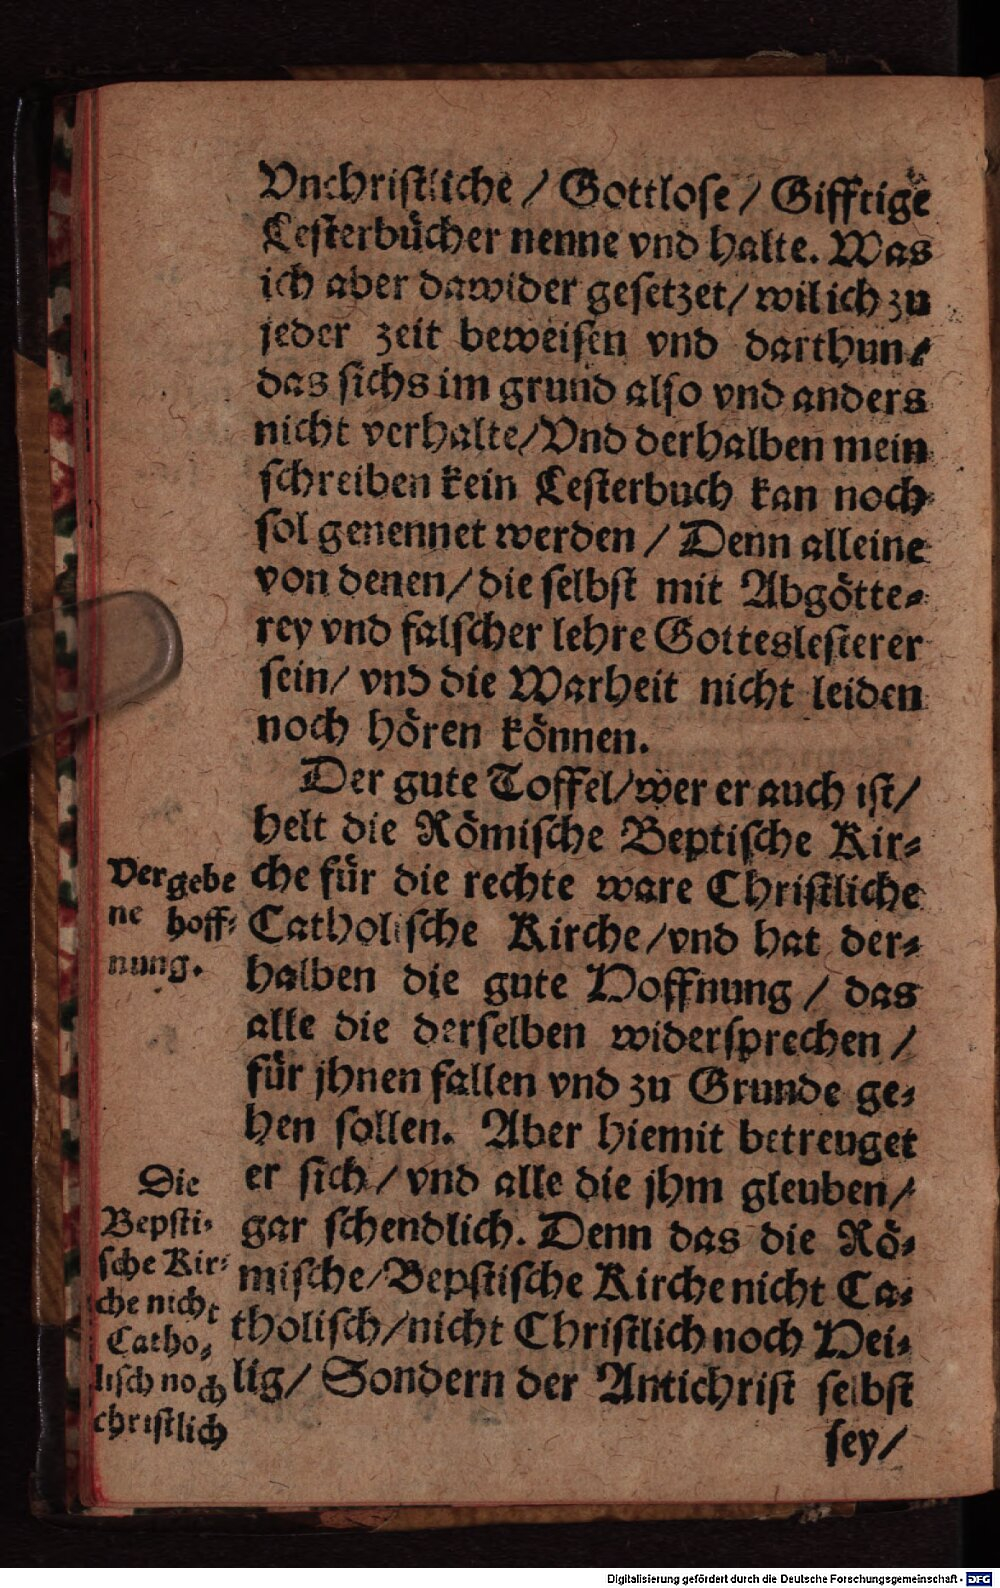 Vnchristliche / Gottlose / Gifftige
Lesterbücher nenne vnd halte. Was
ich aber dawider gesetzet / wil ich zu
jeder zeit beweisen vnd darthun /
das sichs im grund also vnd anders
nicht verhalte / Vnd derhalben mein
schreiben kein Lesterbuch kan noch
sol genennet werden / Denn alleine
von denen / die selbst mit Abgötte-
rey vnd falscher lehre Gotteslesterer
sein / vnd die Warheit nicht leiden
noch hören können.
Der gute Toffel / wer er auch ist /
helt die Römische Beptische Kir-
che für die rechte ware Christliche
Catholische Kirche / vnd hat der-
halben die gute Hoffnung / das
alle die derselben widersprechen /
für jhnen fallen vnd zu Grunde ge-
hen sollen. Aber hiemit betreuget
er sich / vnd alle die jhm gleuben /
gar schendlich. Denn das die Rö-
mische / Bepstische Kirche nicht Ca-
tholisch / nicht Christlich noch Hei-
lig / Sondern der Antichrist selbst
sey /
Vergebe
ne hoff-
nung.
Die
Bepsti-
sche Kir-
che nicht
Catho-
lisch noch
christlich
Digitalisierung gefördert durch die Deutsche Forschungsgemeinschaft - DFG